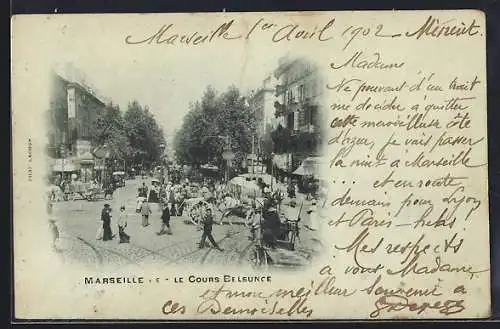 Marseille 1er Août 1902 -
Madame
Ne pouvant d'un trait
me décider à quitter
cette merveilleuse côte
d'azur, je vais passer
la nuit à Marseille
.... et en route,
demain pour Lyon
et Paris - hélas
Mes respects
à vous Madame,
et mon meilleur souvenir à
ces Demoiselles
MARSEILLE - LE COURS BELSUNCE